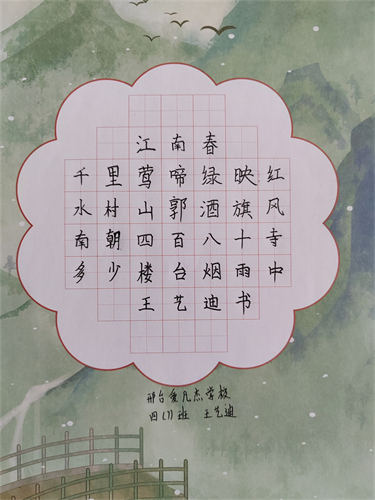 江南春
千里莺啼绿映红
水村山郭酒旗风
南朝四百八十寺
多少楼台烟雨中
王艺迪书
邢台爱凡杰学校
四(1)班 王艺迪